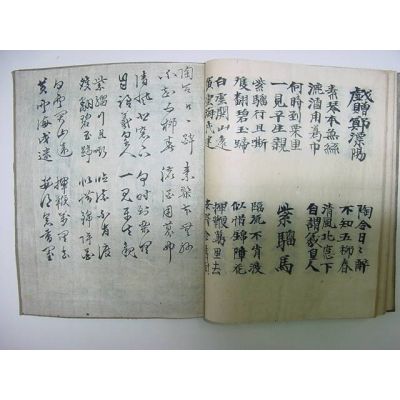 戯贈鄭溧陽
陶令日々酔
不知五柳春
素琴本無絃
漉酒用葛巾
清風北窓下
自謂羲皇人
何時到栗里
一見平生親
紫騮馬
紫騮行且嘶
雙翻碧玉蹄
臨流不肯渡
似惜錦障
白雲関山遠
黄雲海戍迷
揮鞭萬里去
陶令日々酔 素琴本無絃
不知五柳春 漉酒用葛巾
清風北窓下 何時到栗里
自謂羲皇人 一見平生親
紫騮行且嘶 臨流不肯渡
雙翻碧玉蹄 似惜錦障泥
白雲関山遠 揮鞭萬里去
黄雲海戍迷 安得念春閨